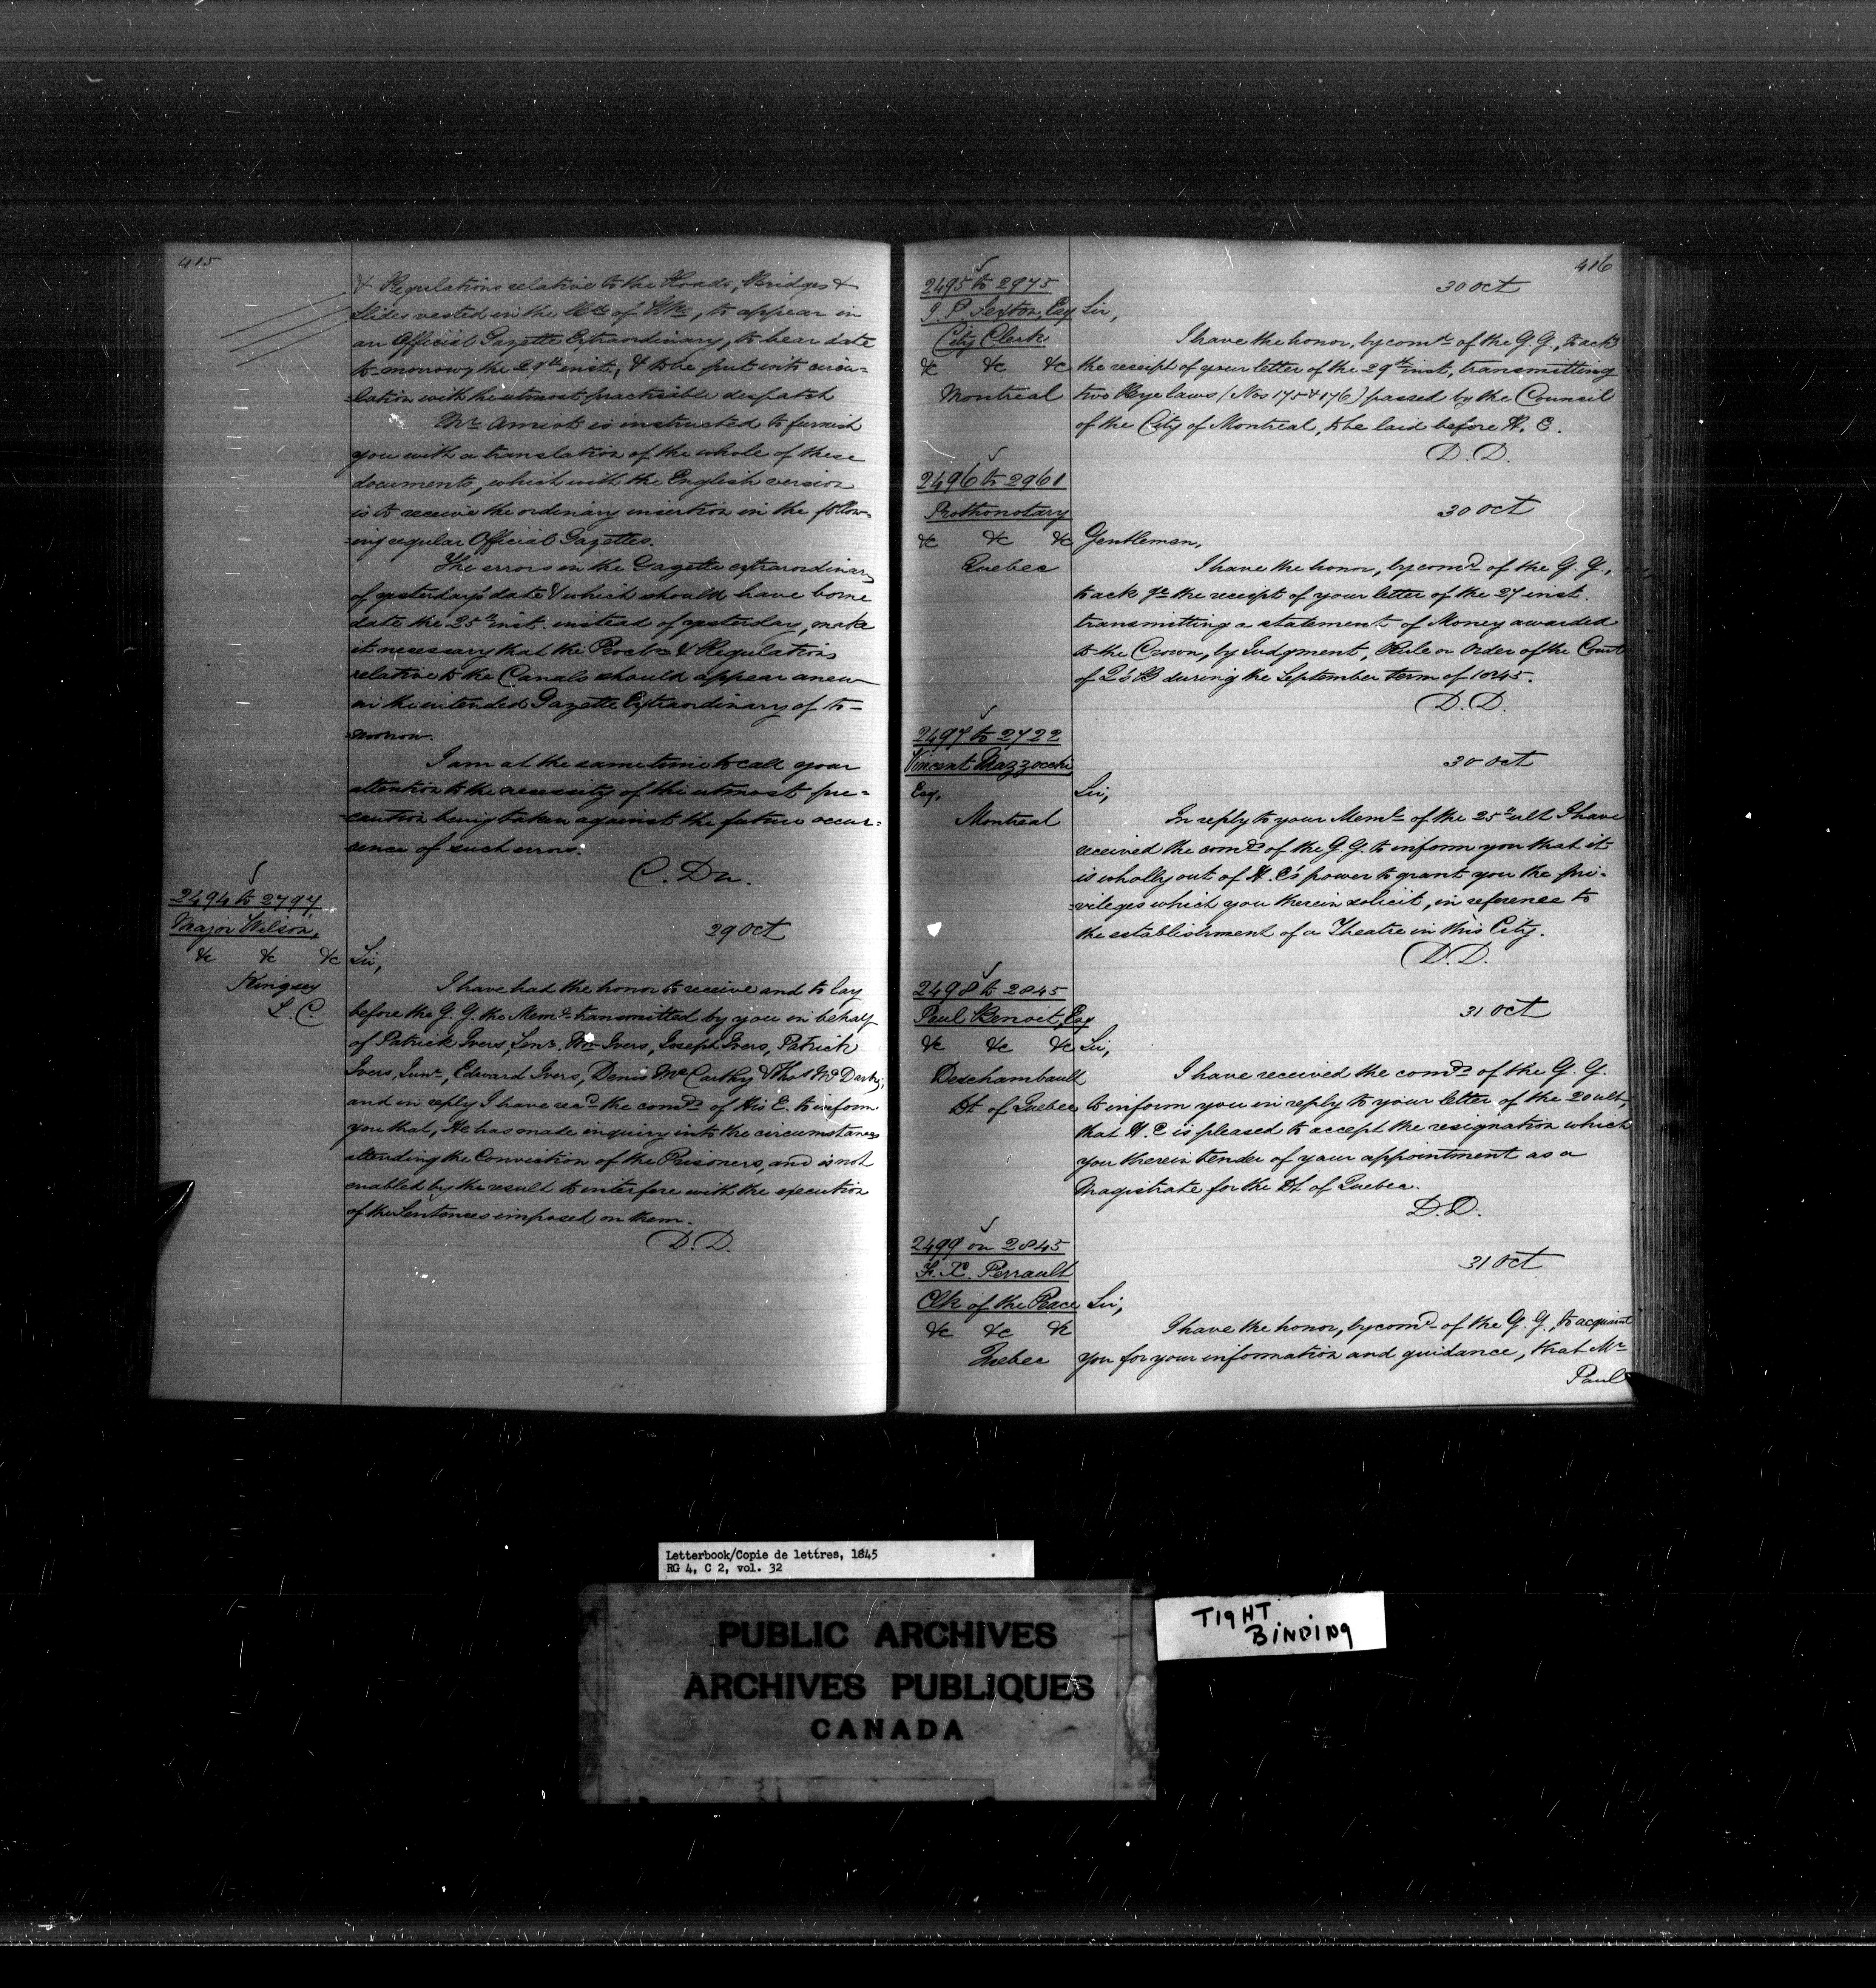 415
& Regulations relative to the Roads, Bridges &
Slides vested in the of Wks, to appear in
an Official Gazette Extraordinary, to bear date
to-morrow, the 29th inst., & to be put into circu-
-lation with the utmost practicable despatch
Mr. Amiot is instructed to furnish
you with a translation of the whole of these
documents, which with the English version
is to receive the ordinary insertion in the follow-
-ing regular Official Gazettes.
The errors in the Gazette extraordinary
of yesterday's date & which should have borne
date the 25th inst. instead of yesterday, make
it necessary that the Procln & Regulations
relative to the Canals should appear anew
in the intended Gazette Extraordinary of to-
-morrow.
I am at the same time to call your
attention to the necessity of the utmost pre-
-caution being taken against the future occur-
rence of such errors.
C. Du.
2494 to 2797
Major Wilson,
&c &c &c
Kingsey
L. C
29 Oct
Sir,
I have had the honor to receive and to lay
before the G. G. the Meml. transmitted by you in behalf
of Patrick Ivers, Senr. Wm Ivers, Joseph Ivers, Patrick
Ivers, Junr, Edward Ivers, Denis McCarthy & Thos Mc Darby,
and in reply I have recd. the comds of His E. to inform
you that, He has made inquiry into the circumstances
attending the Conviction of the Prisoners, and is not
enabled by the result to interfere with the execution
of the Sentences imposed on them.
D. D.
416
2495 to 2975
J. P. Sexton, Esq
City Clerk
&c &c &c
Montreal
30 Oct
Sir,
I have the honor, by comd. of the G. G., to ackg
the receipt of your letter of the 29th inst, transmitting
two Bye laws (Nos 175 & 176) passed by the Council
of the City of Montreal, to be laid before H. E.
D. D.
2496 to 2961
Prothonotary
&c &c &c
Quebec
30 Oct
Gentlemen,
I have the honor, by comd. of the G. G.,
to ackge the receipt of your letter of the 27 inst.
transmitting a statement of Money awarded
to the Crown, by Judgment, Rule or Order of the Court
of Q's B during the September term of 1845.
D. D.
2497 to 2722
Vincent Mazzocchi
Esq.
Montreal
30 Oct
Sir,
In reply to your Meml. of the 25th ult I have
received the comds of the G. G. to inform you that it
is wholly out of H. E's power to grant you the pri-
-vileges which you therein solicit, in reference to
the establishment of a Theatre in this City.
D. D.
2498 to 2845
Paul Benoit, Esq
&c &c &c
Deschambault
Dt. of Quebec
31 Oct
Sir,
I have received the comds of the G. G.
to inform you in reply to your letter of the 20 ult,
that H. E is pleased to accept the resignation which
you therein tender of your appointment as a
Magistrate for the Dt. of Quebec.
D. D.
2499 on 2845
F. X. Perrault
Clk of the Peace
&c &c &c
Quebec
31 Oct
Sir,
I have the honor, by comd. of the G. G., to acquaint
you for your information and guidance, that Mr
Paul
Letterbook/Copie de lettres, 1845
RG 4, C 2, vol. 32
PUBLIC ARCHIVES
ARCHIVES PUBLIQUES
CANADA
TIGHT
BINDING